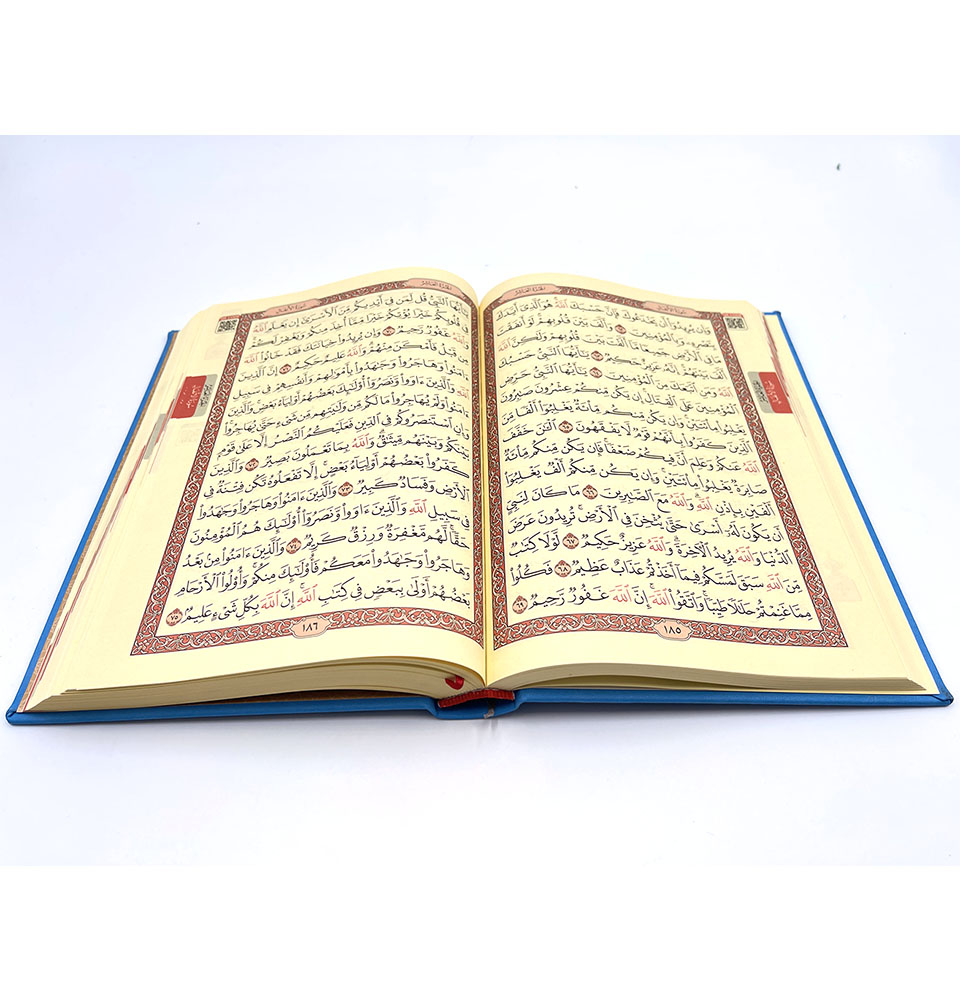 الجزء العاشر سورة الأنفال
وَإِن يُرِيدُوٓاْ أَن يَخۡدَعُوكَ فَإِنَّ حَسۡبَكَ ٱللَّهُۚ هُوَ ٱلَّذِيٓ أَيَّدَكَ
بِنَصۡرِهِۦ وَبِٱلۡمُؤۡمِنِينَ ٦٢ وَأَلَّفَ بَيۡنَ قُلُوبِهِمۡۚ لَوۡ أَنفَقۡتَ
مَا فِي ٱلۡأَرۡضِ جَمِيعٗا مَّآ أَلَّفۡتَ بَيۡنَ قُلُوبِهِمۡ وَلَٰكِنَّ ٱللَّهَ
أَلَّفَ بَيۡنَهُمۡۚ إِنَّهُۥ عَزِيزٌ حَكِيمٞ ٦٣ يَٰٓأَيُّهَا ٱلنَّبِيُّ حَسۡبُكَ
ٱللَّهُ وَمَنِ ٱتَّبَعَكَ مِنَ ٱلۡمُؤۡمِنِينَ ٦٤ يَٰٓأَيُّهَا ٱلنَّبِيُّ حَرِّضِ
ٱلۡمُؤۡمِنِينَ عَلَى ٱلۡقِتَالِۚ إِن يَكُن مِّنكُمۡ عِشۡرُونَ صَٰبِرُونَ
يَغۡلِبُواْ مِاْئَتَيۡنِۚ وَإِن يَكُن مِّنكُم مِّاْئَةٞ يَغۡلِبُوٓاْ أَلۡفٗا مِّنَ
ٱلَّذِينَ كَفَرُواْ بِأَنَّهُمۡ قَوۡمٞ لَّا يَفۡقَهُونَ ٦٥ ٱلۡـَٰٔنَ خَفَّفَ
ٱللَّهُ عَنكُمۡ وَعَلِمَ أَنَّ فِيكُمۡ ضَعۡفٗاۚ فَإِن يَكُن مِّنكُم مِّاْئَةٞ
صَابِرَةٞ يَغۡلِبُواْ مِاْئَتَيۡنِۚ وَإِن يَكُن مِّنكُمۡ أَلۡفٞ يَغۡلِبُوٓاْ
أَلۡفَيۡنِ بِإِذۡنِ ٱللَّهِۗ وَٱللَّهُ مَعَ ٱلصَّٰبِرِينَ ٦٦ مَا كَانَ لِنَبِيٍّ
أَن يَكُونَ لَهُۥٓ أَسۡرَىٰ حَتَّىٰ يُثۡخِنَ فِي ٱلۡأَرۡضِۚ تُرِيدُونَ عَرَضَ
ٱلدُّنۡيَا وَٱللَّهُ يُرِيدُ ٱلۡأٓخِرَةَۗ وَٱللَّهُ عَزِيزٌ حَكِيمٞ ٦٧ لَّوۡلَا كِتَٰبٞ
مِّنَ ٱللَّهِ سَبَقَ لَمَسَّكُمۡ فِيمَآ أَخَذۡتُمۡ عَذَابٌ عَظِيمٞ ٦٨ فَكُلُواْ
مِمَّا غَنِمۡتُمۡ حَلَٰلٗا طَيِّبٗاۚ وَٱتَّقُواْ ٱللَّهَۚ إِنَّ ٱللَّهَ غَفُورٞ رَّحِيمٞ ٦٩
١٨٥
الجزء العاشر سورة الأنفال
يَٰٓأَيُّهَا ٱلنَّبِيُّ قُل لِّمَن فِيٓ أَيۡدِيكُم مِّنَ ٱلۡأَسۡرَىٰٓ إِن يَعۡلَمِ ٱللَّهُ
فِي قُلُوبِكُمۡ خَيۡرٗا يُؤۡتِكُمۡ خَيۡرٗا مِّمَّآ أُخِذَ مِنكُمۡ وَيَغۡفِرۡ لَكُمۡۚ
وَٱللَّهُ غَفُورٞ رَّحِيمٞ ٧٠ وَإِن يُرِيدُواْ خِيَانَتَكَ فَقَدۡ خَانُواْ ٱللَّهَ
مِن قَبۡلُ فَأَمۡكَنَ مِنۡهُمۡۗ وَٱللَّهُ عَلِيمٌ حَكِيمٌ ٧١ إِنَّ ٱلَّذِينَ
ءَامَنُواْ وَهَاجَرُواْ وَجَٰهَدُواْ بِأَمۡوَٰلِهِمۡ وَأَنفُسِهِمۡ فِي سَبِيلِ
ٱللَّهِ وَٱلَّذِينَ ءَاوَواْ وَّنَصَرُوٓاْ أُوْلَٰٓئِكَ بَعۡضُهُمۡ أَوۡلِيَآءُ بَعۡضٖۚ وَٱلَّذِينَ
ءَامَنُواْ وَلَمۡ يُهَاجِرُواْ مَا لَكُم مِّن وَلَٰيَتِهِم مِّن شَيۡءٍ حَتَّىٰ يُهَاجِرُواْۚ
وَإِنِ ٱسۡتَنصَرُوكُمۡ فِي ٱلدِّينِ فَعَلَيۡكُمُ ٱلنَّصۡرُ إِلَّا عَلَىٰ قَوۡمِۭ
بَيۡنَكُمۡ وَبَيۡنَهُم مِّيثَٰقٞۗ وَٱللَّهُ بِمَا تَعۡمَلُونَ بَصِيرٞ ٧٢ وَٱلَّذِينَ
كَفَرُواْ بَعۡضُهُمۡ أَوۡلِيَآءُ بَعۡضٍۚ إِلَّا تَفۡعَلُوهُ تَكُن فِتۡنَةٞ فِي
ٱلۡأَرۡضِ وَفَسَادٞ كَبِيرٞ ٧٣ وَٱلَّذِينَ ءَامَنُواْ وَهَاجَرُواْ وَجَٰهَدُواْ
فِي سَبِيلِ ٱللَّهِ وَٱلَّذِينَ ءَاوَواْ وَّنَصَرُوٓاْ أُوْلَٰٓئِكَ هُمُ ٱلۡمُؤۡمِنُونَ
حَقّٗاۚ لَّهُم مَّغۡفِرَةٞ وَرِزۡقٞ كَرِيمٞ ٧٤ وَٱلَّذِينَ ءَامَنُواْ مِنۢ بَعۡدُ
وَهَاجَرُواْ وَجَٰهَدُواْ مَعَكُمۡ فَأُوْلَٰٓئِكَ مِنكُمۡۚ وَأُوْلُواْ ٱلۡأَرۡحَامِ
بَعۡضُهُمۡ أَوۡلَىٰ بِبَعۡضٖ فِي كِتَٰبِ ٱللَّهِۚ إِنَّ ٱللَّهَ بِكُلِّ شَيۡءٍ عَلِيمُۢ ٧٥
١٨٦